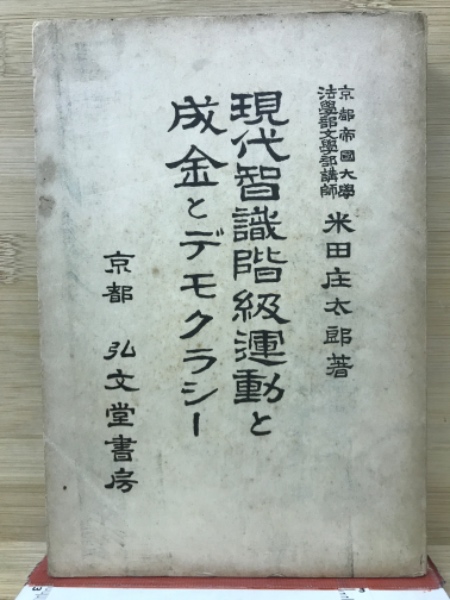 京都帝國大學
法學部文學部講師
米田庄太郎著
現代智識階級運動と
成金とデモクラシー
京都 弘文堂書房